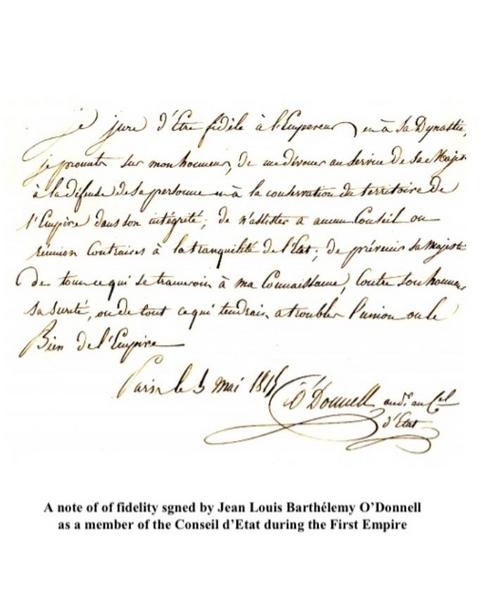 je jure d'Etre fidèle à l'Empereur et à Sa Dynastie,
je promets sur mon honneur, de me dévouer au Service de Sa Majesté
à la défense de Sa personne et à la conservation du territoire de
l'Empire dans son intégrité; de n'assister à aucun Conseil ou
réunion Contraires à la tranquilité de l'Etat; de prévenir sa Majesté
De tout ce qui se trameroit à ma Connaissance, Contre son honneur
sa sureté, ou de tout ce qui tendrait à troubler l'union ou le
Bien de l'Empire
Paris le 5 mai 1815
O'Donnell audr. au Cel
d'Etat
A note of of fidelity sgned by Jean Louis Barthélemy O'Donnell
as a member of the Conseil d'Etat during the First Empire